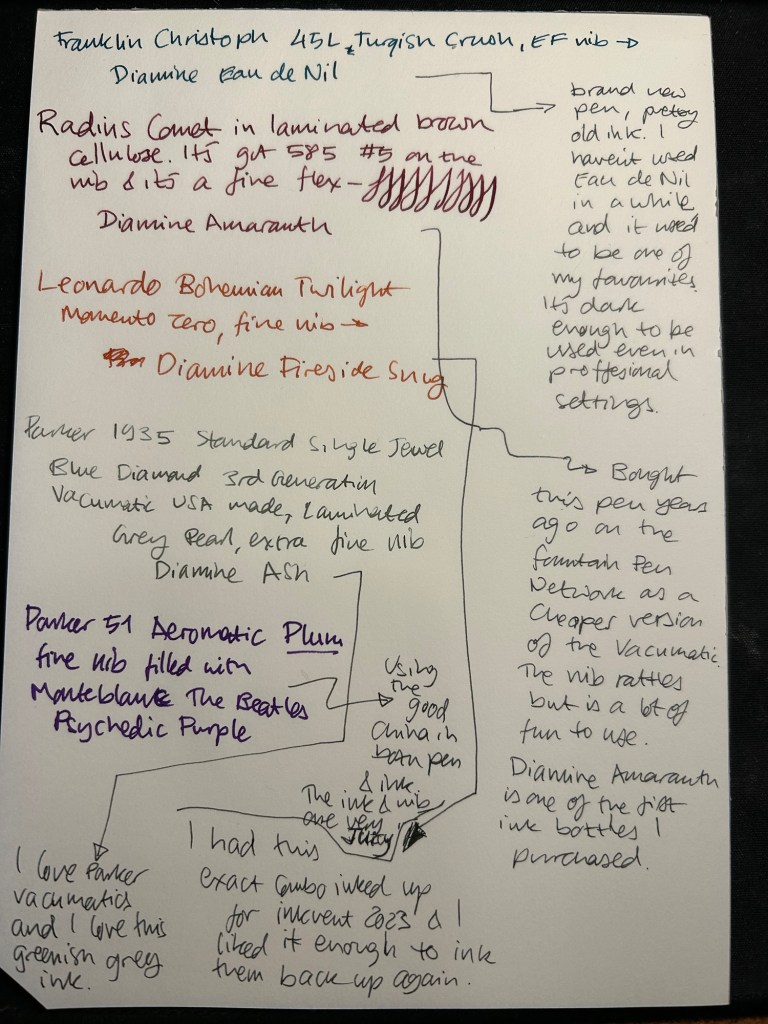 Franklin Christoph 45L, Turgish Crush, EF nib →
Diamine Eau de Nil
brand new
pen, pretty
old ink. I
haven't used
Eau de Nil
in a while
and it used
to be one of
my favourites.
It's dark
enough to be
used even in
proffesimal
settings.
Radius Comet in laminated brown
cellulose. It's got 585 #5 on the
nib & it's a fine flex –
Diamine Amaranth
Bought
this pen years
ago on the
Fountain Pen
Network as a
cheaper version
of the Vacumatic.
The nib rattles
but is a lot of
fun to use.
Diamine Amaranth
is one of the first
ink bottles I
purchased.
Leonardo Bohemian Twilight
Momento Zero, fine nib →
Diamine Fireside Snug
I had this
exact combo inked up
for inkvent 2023 & I
liked it enough to ink
them back up again.
Parker 1935 Standard Single Jewel
Blue Diamond 3rd Generation
Vacumatic USA made, Laminated
Grey Pearl, extra fine nib
Diamine Ash
I love Parker
vacumatics
and I love this
greenish grey
ink.
Parker 51 Aeromatic Plum
fine nib filled with
Monteblanc The Beatles
Psychedic Purple
Using
the
good
China in
both pen
& ink.
The ink & nib
are very
Juicy